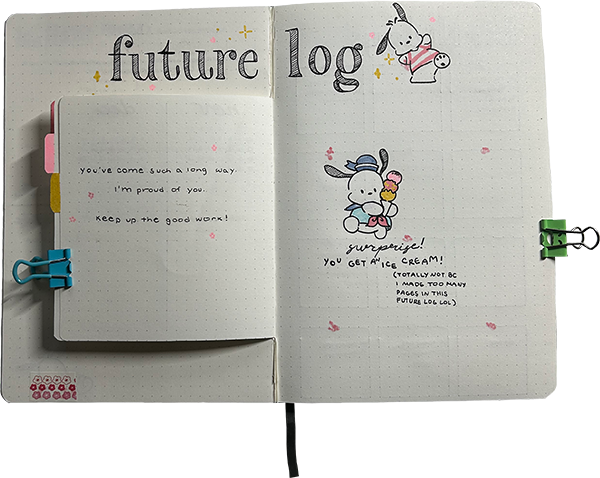 future log
you've come such a long way.
I'm proud of you.
keep up the good work!
surprise!
YOU GET AN ICE CREAM!
(TOTALLY NOT BC
I MADE TOO MANY
PAGES IN THIS
FUTURE LOG LOL)